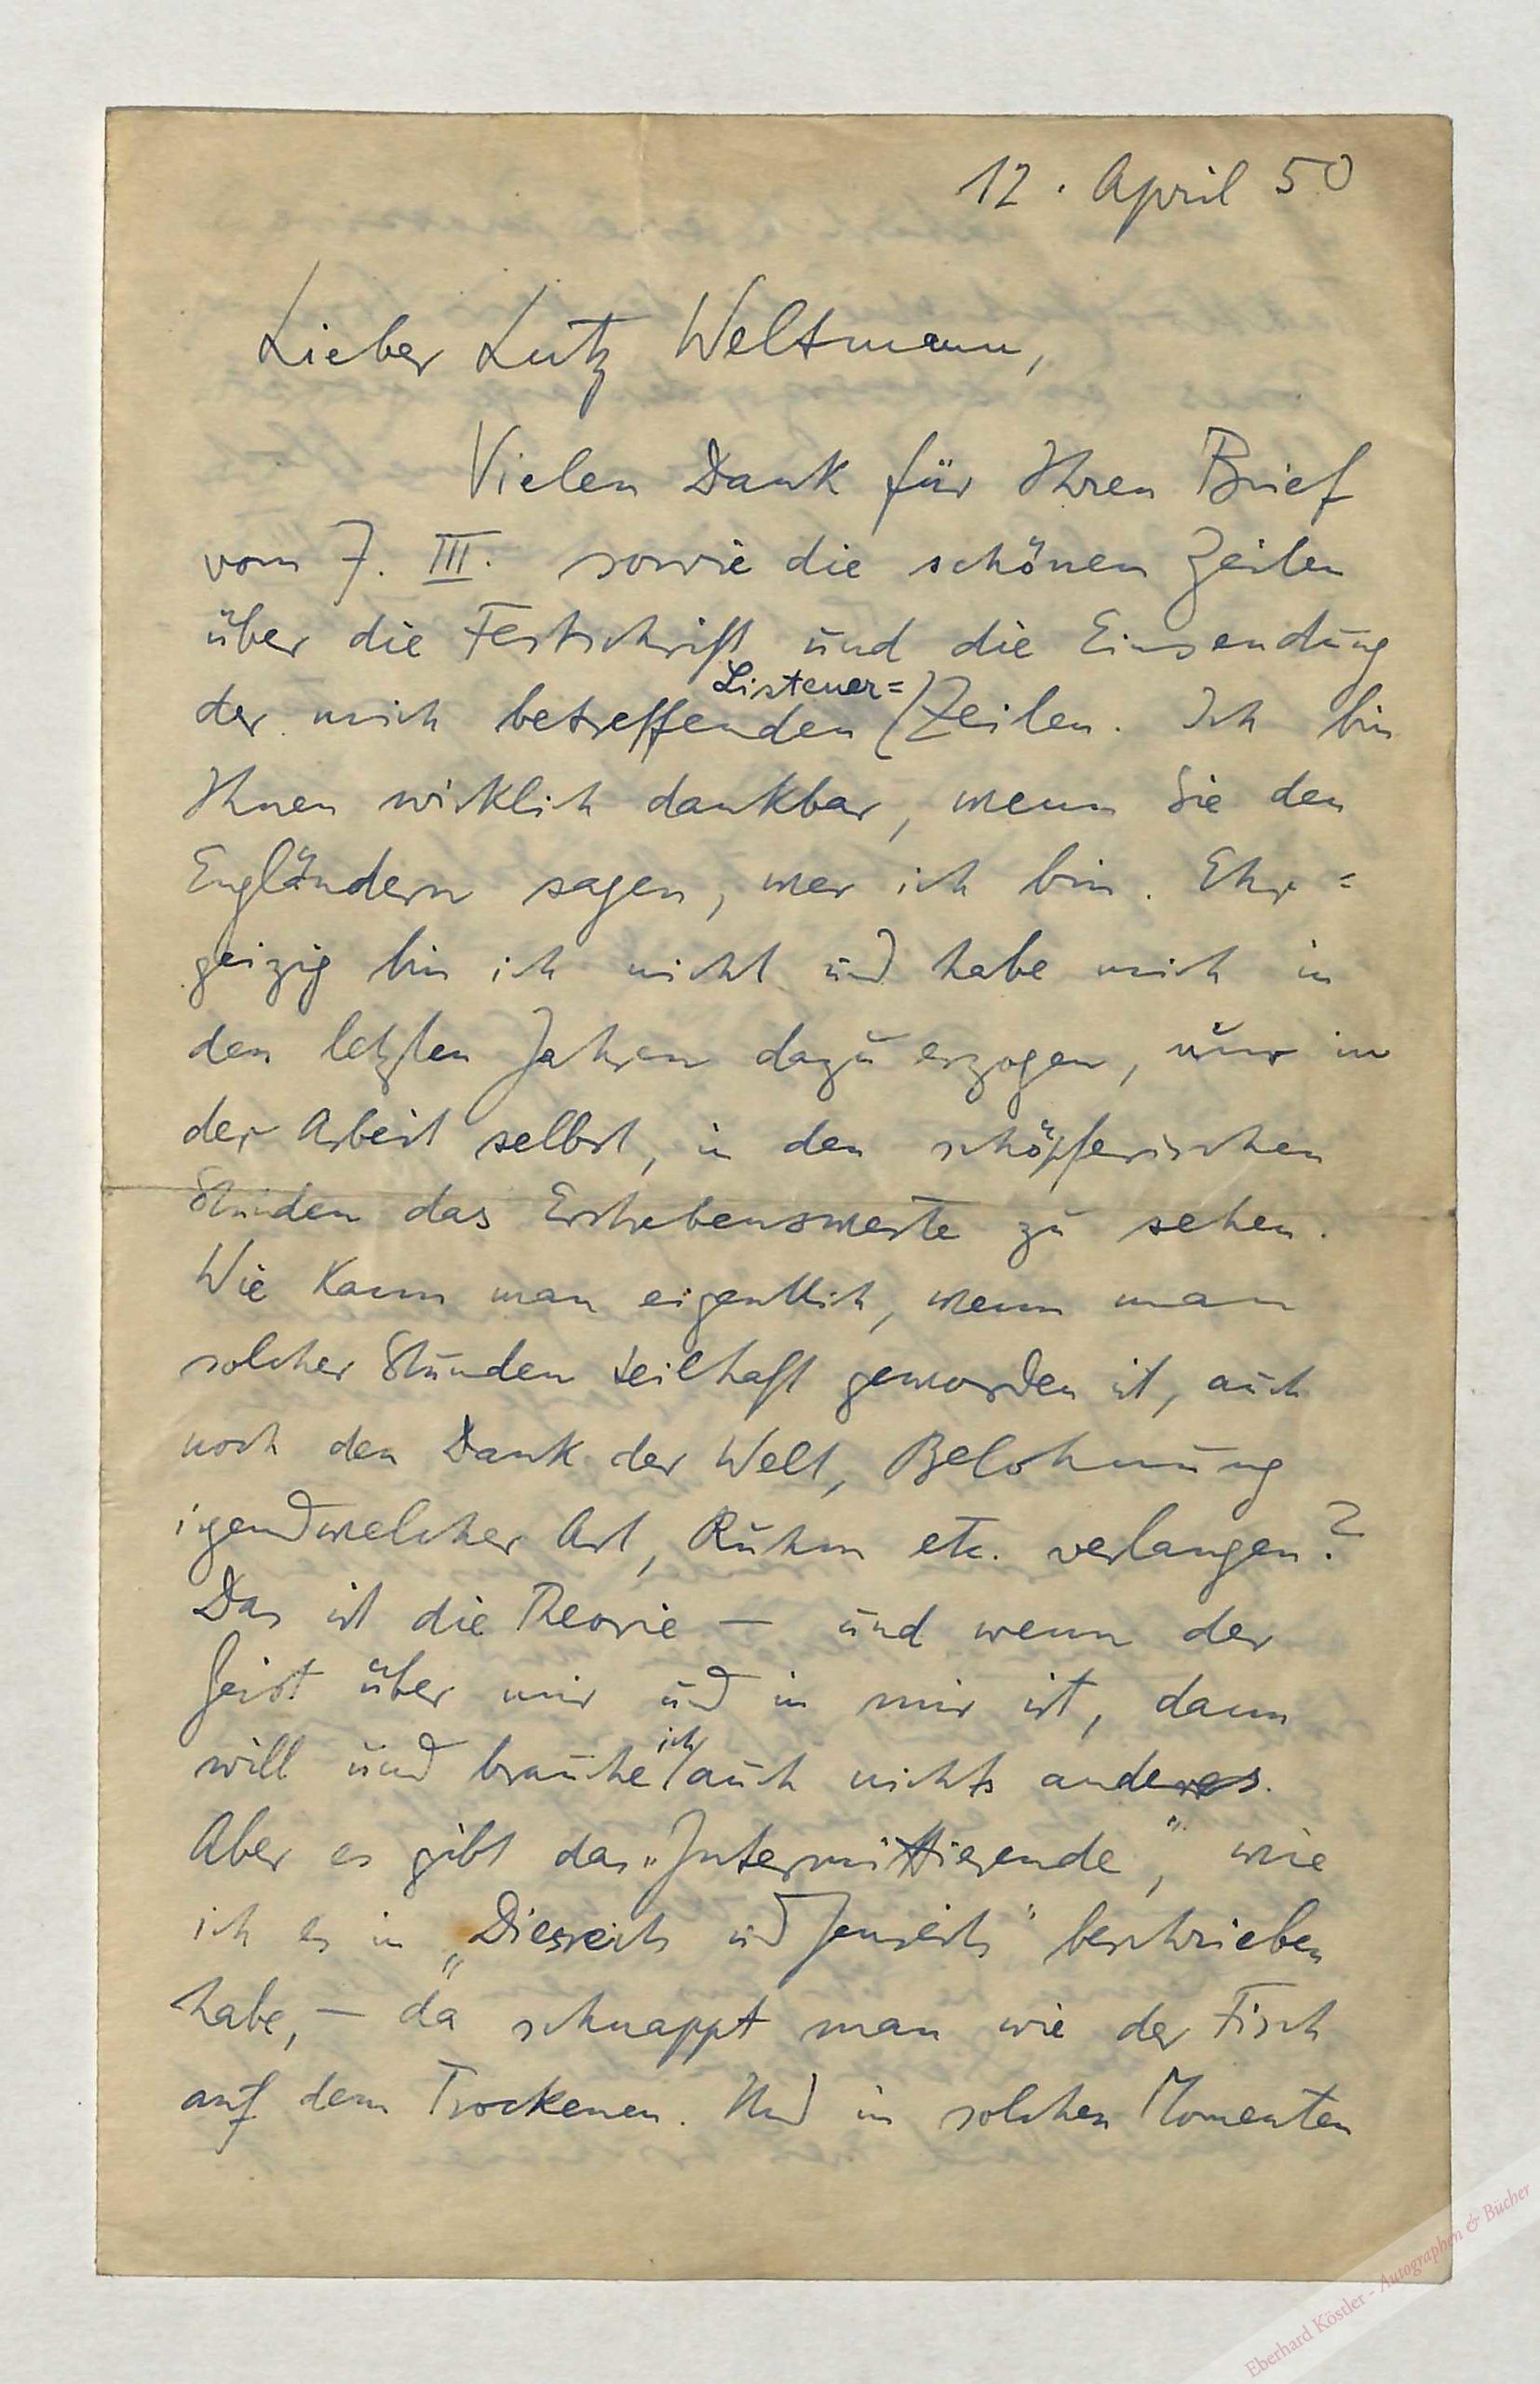 12. April 50
Lieber Lutz Weltmann,
Vielen Dank für Ihren Brief
vom 7. III. sowie die schönen Zeilen
über die Festschrift und die Einsendung
der mich betreffenden Listener=Zeilen. Ich bin
Ihnen wirklich dankbar, wenn Sie den
Engländern sagen, wer ich bin. Ehr=
geizig bin ich nicht und habe mich in
den letzten Jahren dazu erzogen, nur in
der Arbeit selbst, in den schöpferischen
Stunden das Erstrebenswerte zu sehen.
Wie kann man eigentlich, wenn man
solcher Stunden teilhaft geworden ist, auch
noch den Dank der Welt, Belohnung
irgendwelcher Art, Ruhm etc. verlangen?
Das ist die Theorie — und wenn der
Geist über mir und in mir ist, dann
will und brauche ich auch nichts anderes.
Aber es gibt das „Intermittierende", wie
ich es in „Diesseits und Jenseits" beschrieben
habe, — da schnappt man wie der Fisch
auf dem Trockenen. Und in solchen Momenten
Eberhard Köstler - Autographen & Bücher